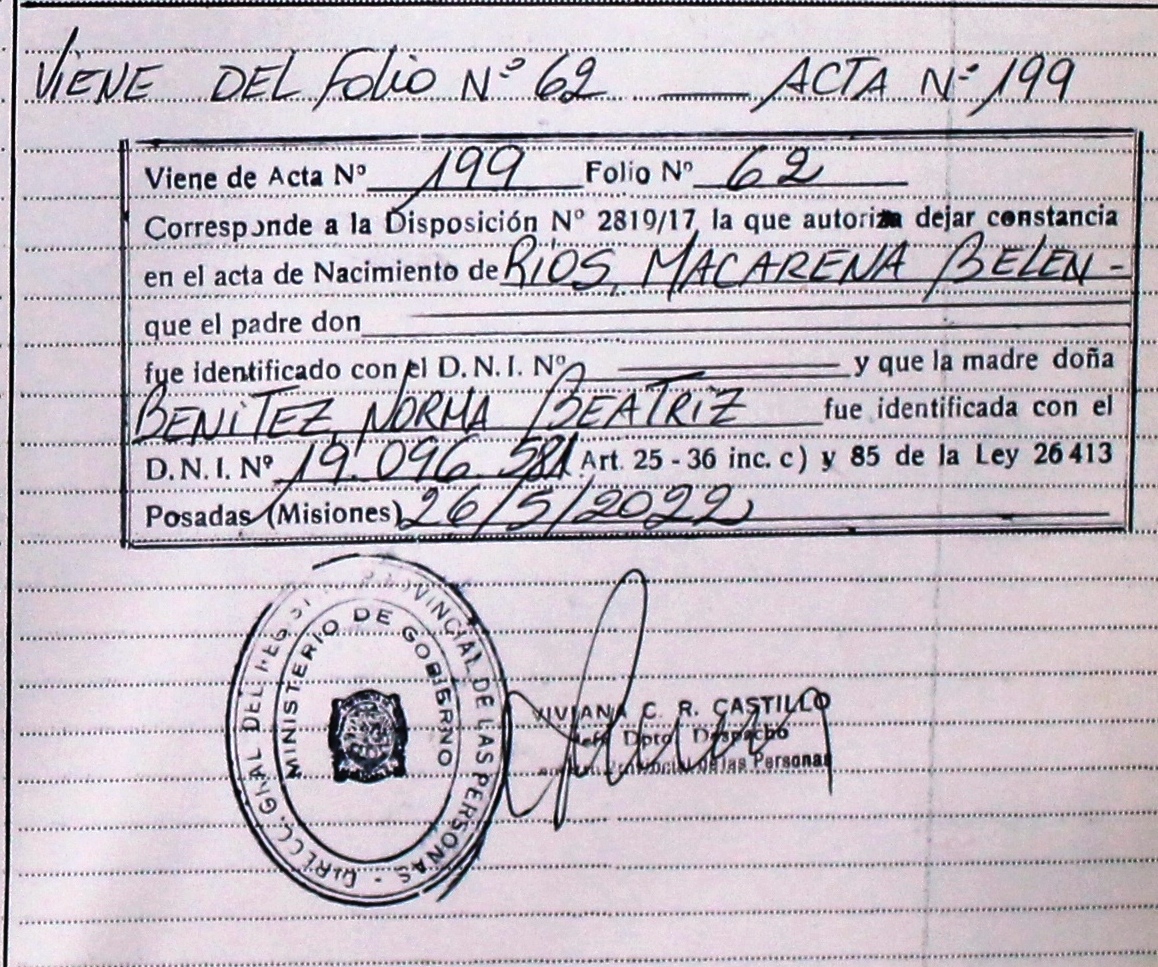 VIENE DEL Folio Nº 62 ACTA Nº 199
Viene de Acta Nº 199 Folio Nº 62
Corresponde a la Disposición Nº 2819/17, la que autoriza dejar constancia
en el acta de Nacimiento de RIOS, MACARENA BELEN -
que el padre don
fue identificado con el D. N. I. Nº y que la madre doña
BENITEZ, NORMA BEATRIZ fue identificada con el
D. N. I. Nº 19.096.581 Art. 25 - 36 inc. c) y 85 de la Ley 26413
Posadas (Misiones) 26/5/2022
DIRECC. GRAL DEL REGIST PROVINCIAL DE LAS PERSONAS -
MINISTERIO DE GOBIERNO
VIVIANA C. R. CASTILLO
Jefe Dpto. Despacho
Provincial de las Personas